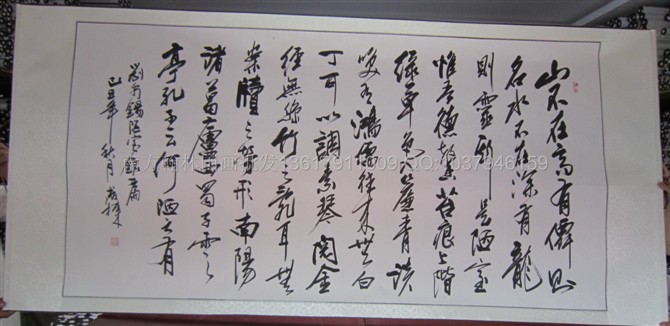 山不在高有僊則
名水不在深有龍
則靈斯是陋室
惟吾德馨苔痕上階
綠草色入簾青談
咲有鴻儒往來無白
丁可以調素琴閱金
經無絲竹之亂耳無
案牘之勞形南陽
諸葛廬西蜀子云
亭孔子云何陋之有
劉禹錫陋室銘
己丑年秋月
QQ:1037946159